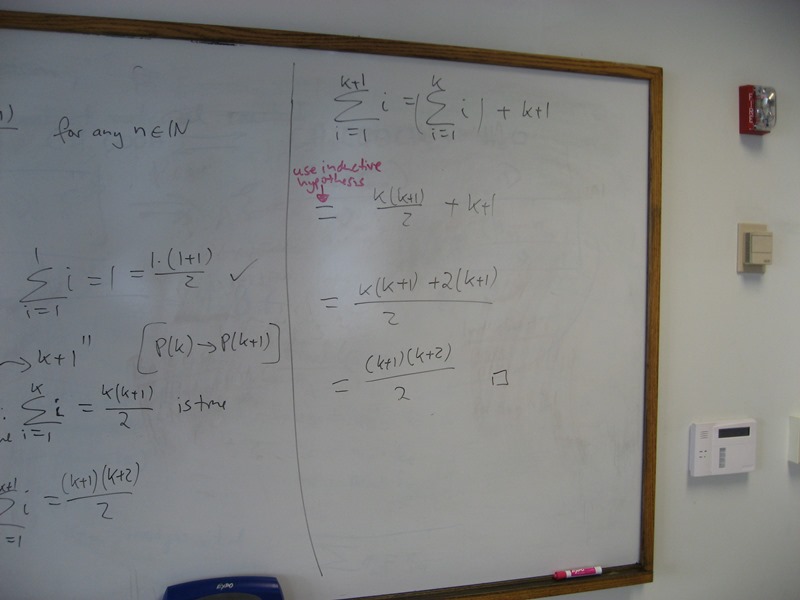 for any n ∈ ℕ
∑_{i=1}^{1} i = 1 = 1·(1+1)/2 ✓
→ k+1" [P(k) → P(k+1)]
∑_{i=1}^{k} i = k(k+1)/2 is true
∑_{i=1}^{k+1} i = (k+1)(k+2)/2
∑_{i=1}^{k+1} i = (∑_{i=1}^{k} i) + k+1
use inductive
hypothesis
= k(k+1)/2 + k+1
= k(k+1) + 2(k+1)/2
= (k+1)(k+2)/2 □
FIRE
EXPO